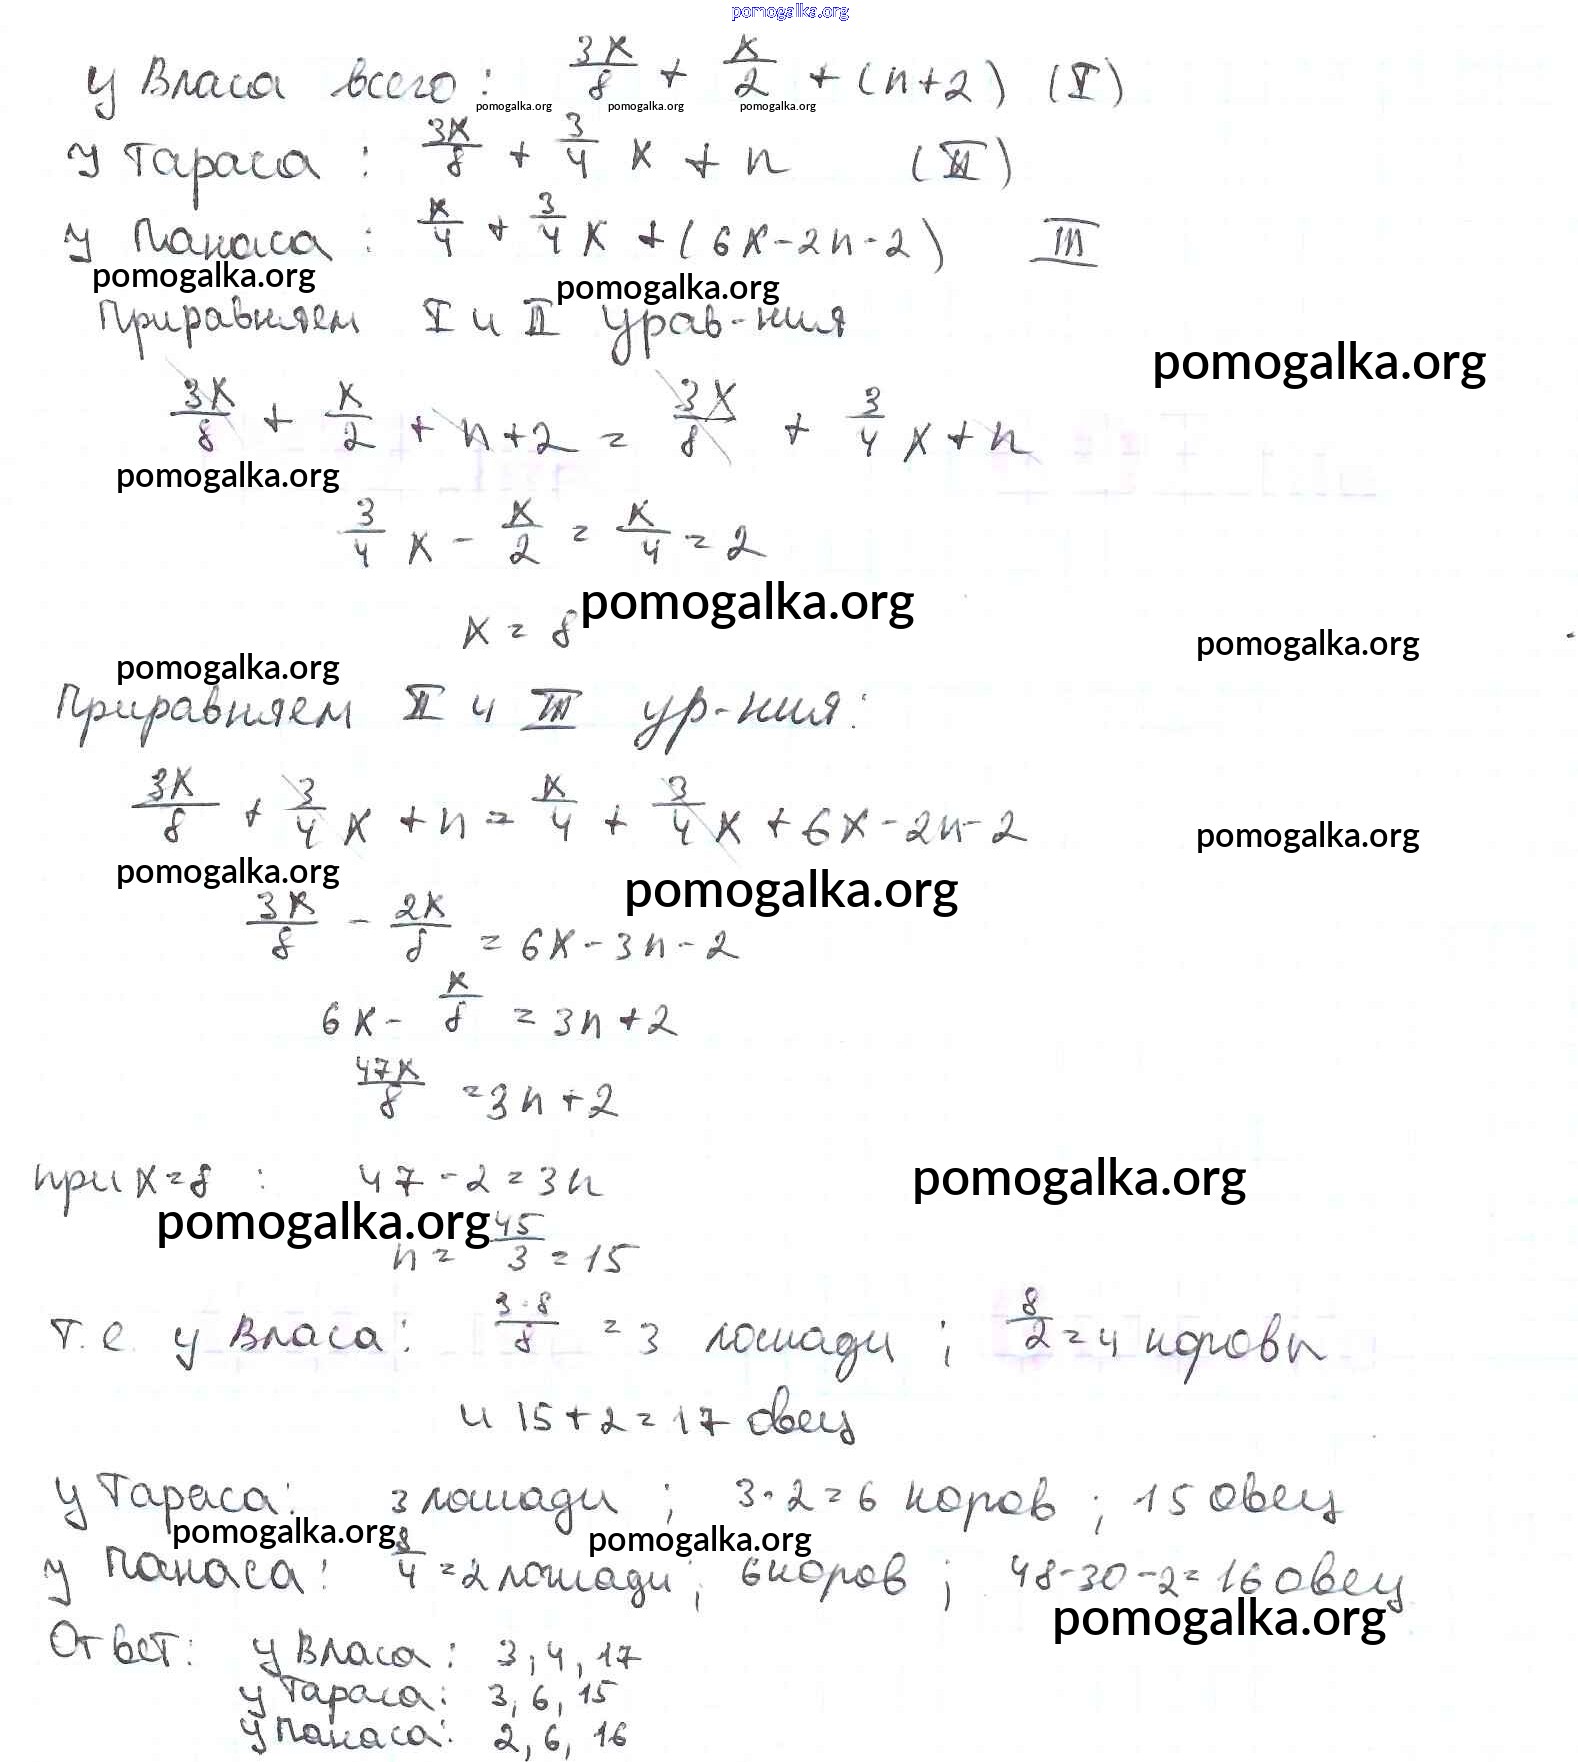 pomogalka.org
у Власа всего: 3x/8 + x/2 + (n+2) (I)
pomogalka.org pomogalka.org pomogalka.org
у Тараса: 3x/8 + 3/4 x + n (II)
у Панаса: x/4 + 3/4 x + (6x-2n-2) III
pomogalka.org pomogalka.org
Приравняем I и II урав-ния
pomogalka.org
3x/8 + x/2 + n+2 = 3x/8 + 3/4 x + n
pomogalka.org
3/4 x - x/2 = x/4 = 2
x = 8 pomogalka.org
pomogalka.org
pomogalka.org
Приравняем II и III ур-ния:
3x/8 + 3/4 x + n = x/4 + 3/4 x + 6x - 2n - 2
pomogalka.org
pomogalka.org pomogalka.org
3x/8 - 2x/8 = 6x - 3n - 2
6x - x/8 = 3n + 2
47x/8 = 3n + 2
при x=8 : 47 - 2 = 3n
pomogalka.org
pomogalka.org
n = 45/3 = 15
т.е. у Власа: 3·8/8 = 3 лошади ; 8/2 = 4 коровы
и 15+2=17 овец
у Тараса: 3 лошади ; 3·2=6 коров ; 15 овец
pomogalka.org pomogalka.org
у Панаса: 8/4 = 2 лошади ; 6 коров ; 48-30-2=16 овец
pomogalka.org
Ответ: у Власа: 3, 4, 17
у Тараса: 3, 6, 15
у Панаса: 2, 6, 16